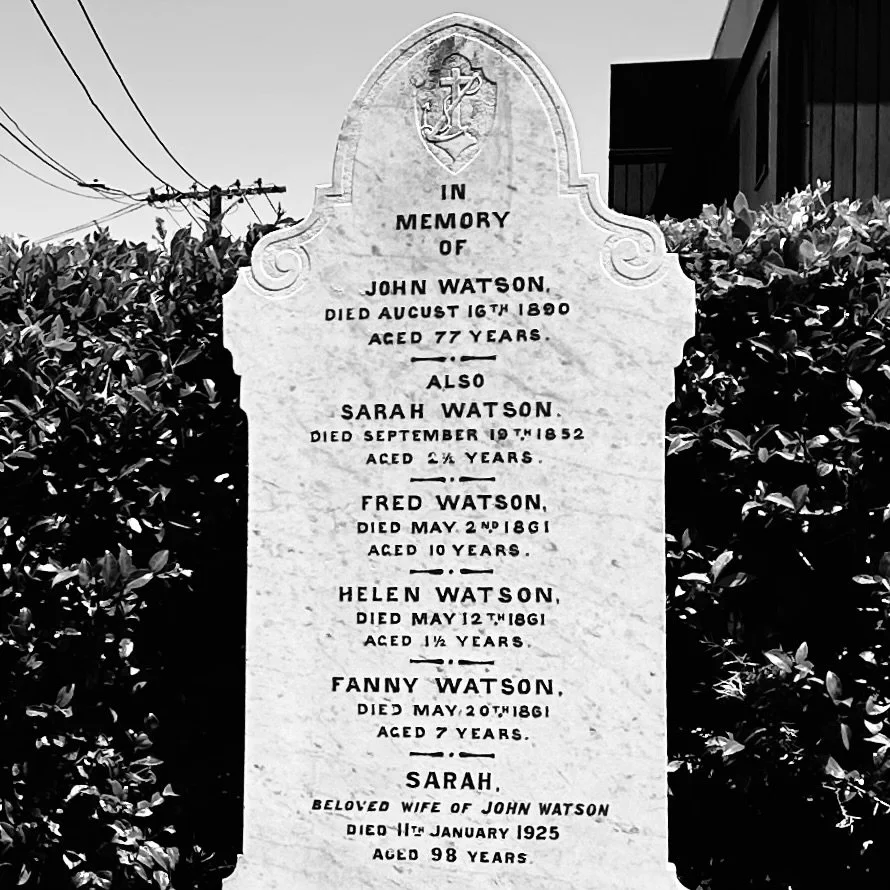 IN
MEMORY
OF
JOHN WATSON,
DIED AUGUST 16TH 1890
AGED 77 YEARS.
ALSO
SARAH WATSON.
DIED SEPTEMBER 19TH 1852
AGED 2½ YEARS.
FRED WATSON,
DIED MAY 2ND 1861
AGED 10 YEARS.
HELEN WATSON,
DIED MAY 12TH 1861
AGED 1½ YEARS.
FANNY WATSON,
DIED MAY 20TH 1861
AGED 7 YEARS.
SARAH,
BELOVED WIFE OF JOHN WATSON
DIED 11TH JANUARY 1925
AGED 98 YEARS.